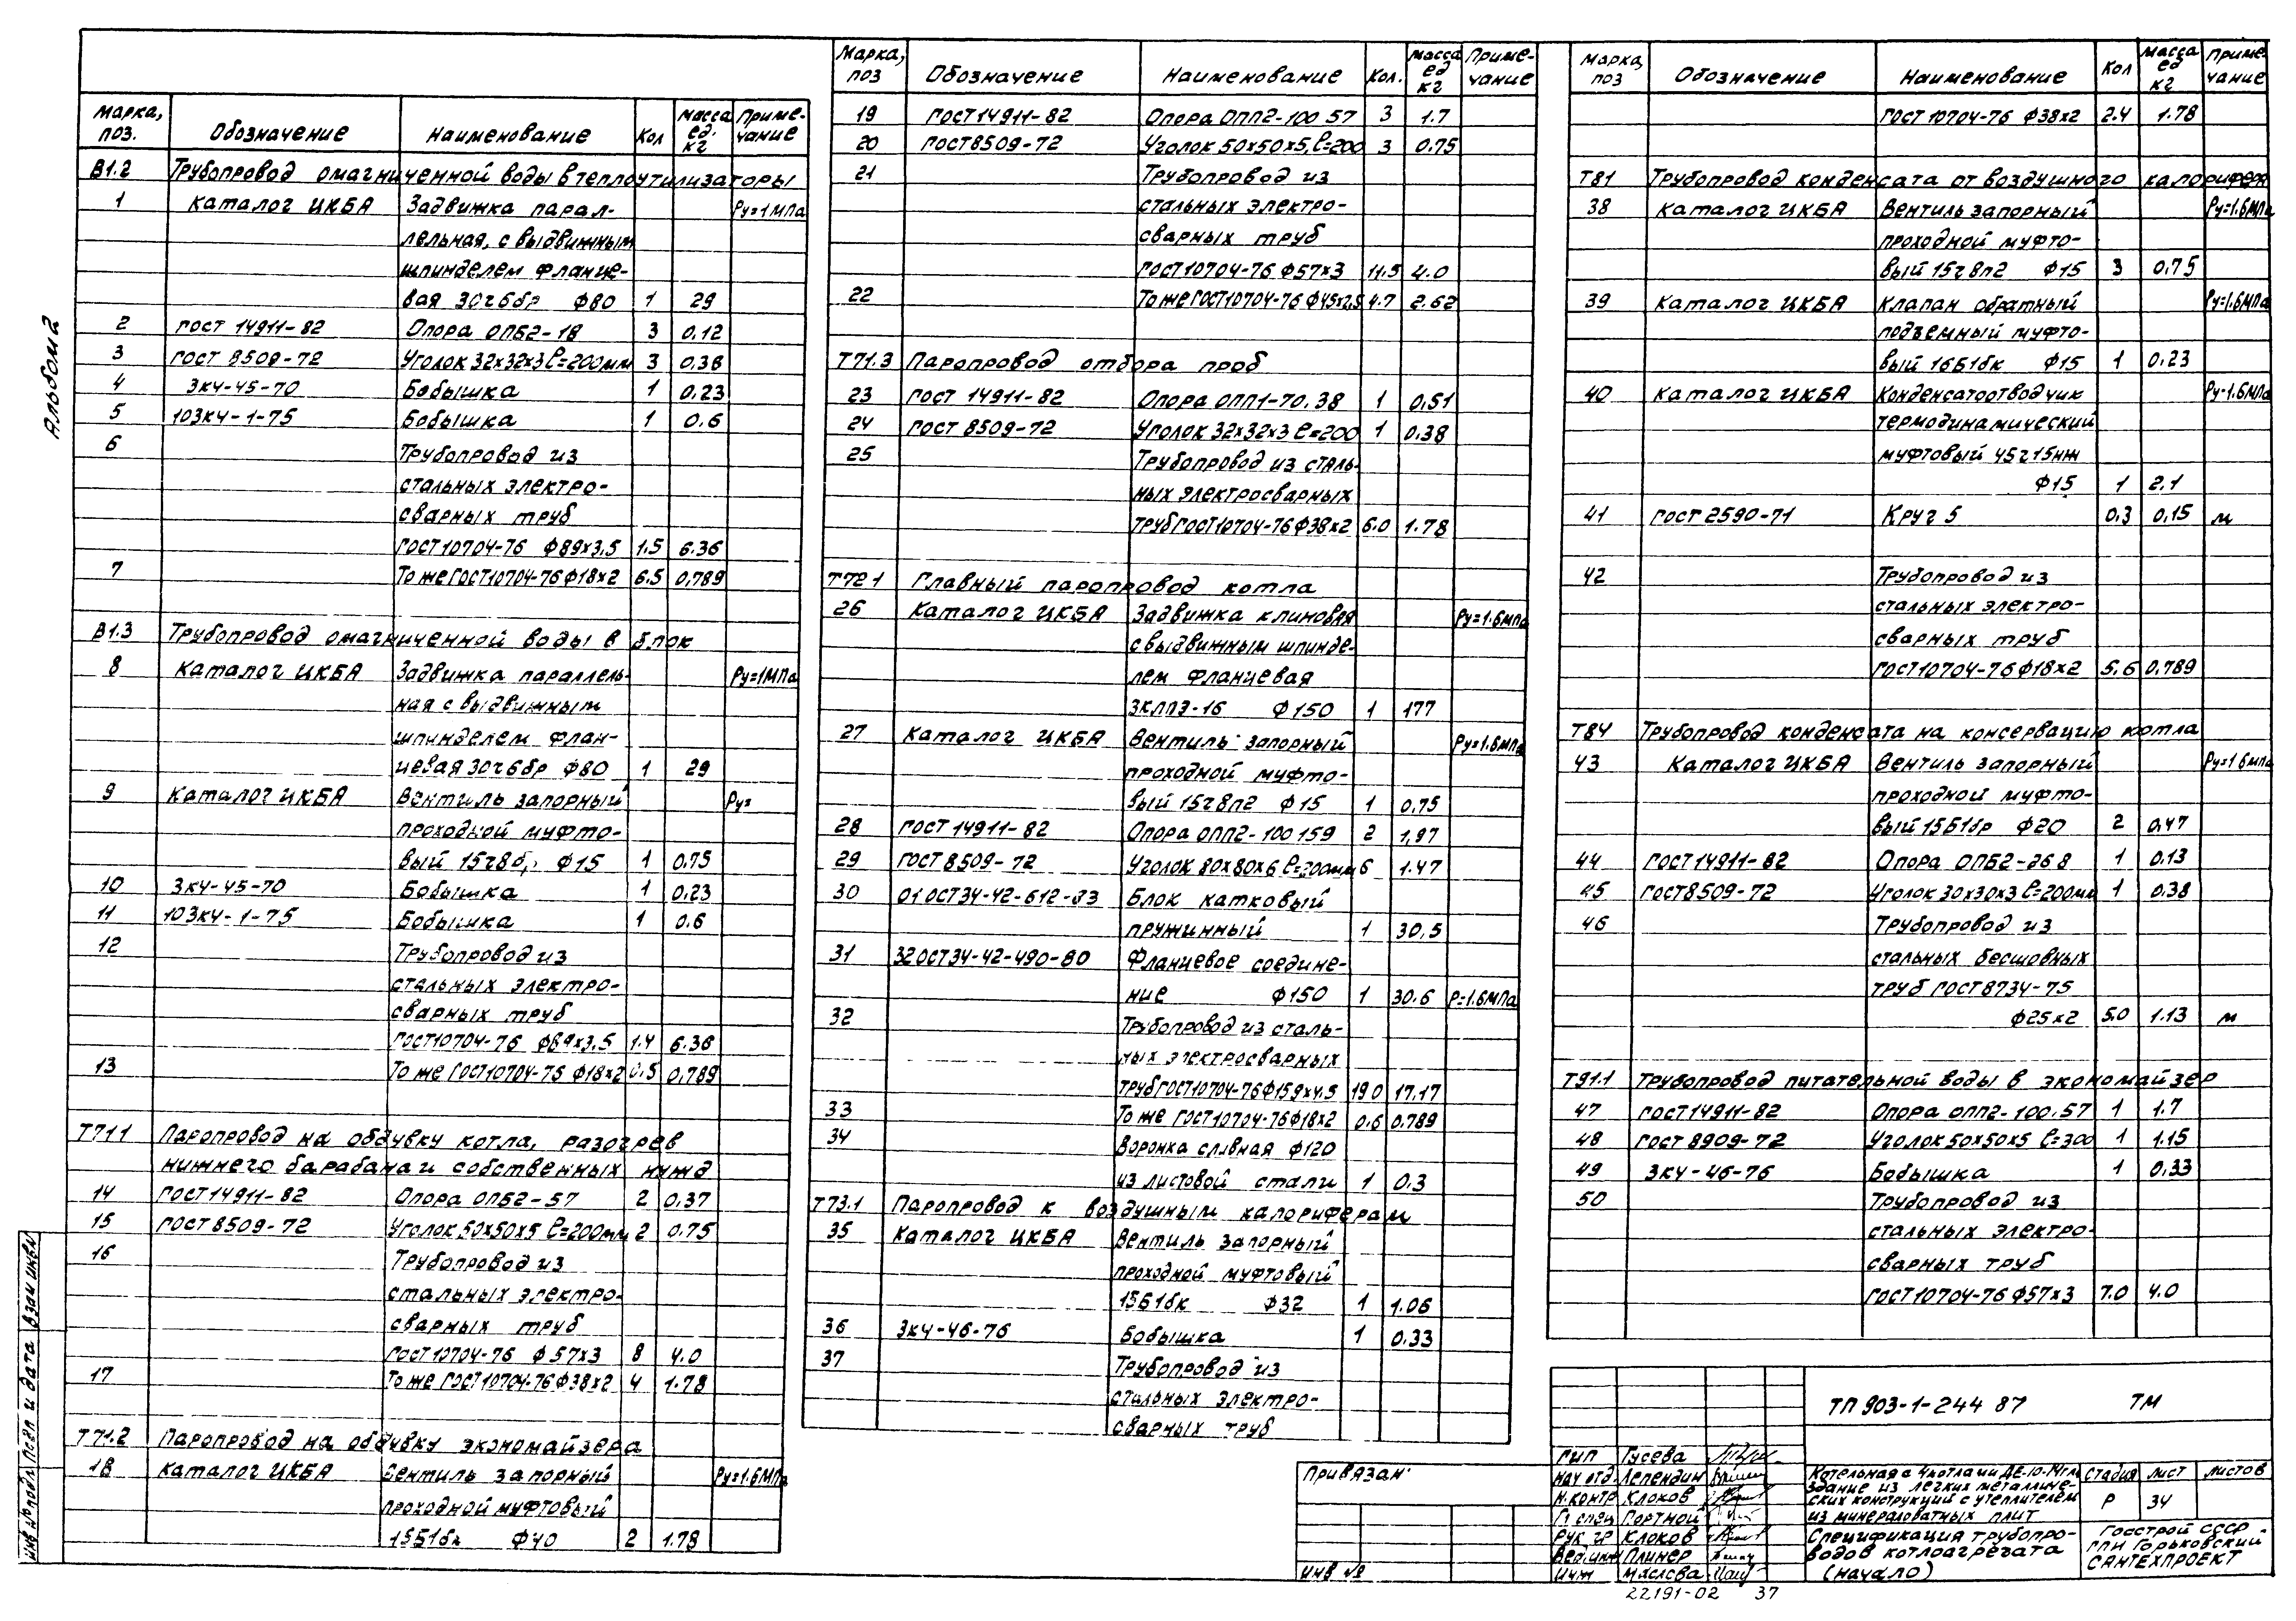 Альбом 2
Марка, поз. Обозначение Наименование Кол Масса ед. кг Примечание
В1.2 Трубопровод омагниченной воды в теплоутилизаторы
1 Каталог ЦКБА Задвижка парал- Ру=1МПа
лельная, с выдвижным
шпинделем фланце-
вая 30ч6бр ф80 1 29
2 ГОСТ 14911-82 Опора ОПБ2-18 3 0,12
3 ГОСТ 8509-72 Уголок 32х32х3 ℓ=200мм 3 0,36
4 3К4-45-70 Бобышка 1 0,23
5 103К4-1-75 Бобышка 1 0.6
6 Трубопровод из
стальных электро-
сварных труб
ГОСТ 10704-76 ф89х3,5 1,5 6.36
7 То же ГОСТ 10704-76 ф18х2 6.5 0,789
В1.3 Трубопровод омагниченной воды в блок
8 Каталог ЦКБА Задвижка параллель- Ру=1МПа
ная с выдвижным
шпинделем флан-
цевая 30ч6бр ф80 1 29
9 Каталог ЦКБА Вентиль запорный Ру=
проходной муфто-
вый 15ч8б, ф15 1 0,75
10 3К4-45-70 Бобышка 1 0,23
11 103К4-1-75 Бобышка 1 0.6
12 Трубопровод из
стальных электро-
сварных труб
ГОСТ 10704-76 ф89х3,5 1.4 6.36
13 То же ГОСТ 10704-76 ф18х2 0,5 0,789
Т71.1 Паропровод на обдувку котла, разогрев
нижнего барабана и собственных нужд
14 ГОСТ 14911-82 Опора ОПБ2-57 2 0,37
15 ГОСТ 8509-72 Уголок 50х50х5 ℓ=200мм 2 0,75
16 Трубопровод из
стальных электро-
сварных труб
ГОСТ 10704-76 ф57х3 8 4.0
17 То же ГОСТ 10704-76 ф38х2 4 1.78
Т71.2 Паропровод на обдувку экономайзера
18 Каталог ЦКБА Вентиль запорный Ру=1.6МПа
проходной муфтовый
15Б1бк ф40 2 1.78
Марка, поз Обозначение Наименование Кол. Масса ед кг Примечание
19 ГОСТ 14911-82 Опора ОПП2-100 57 3 1.7
20 ГОСТ 8509-72 Уголок 50х50х5, ℓ=200 3 0.75
21 Трубопровод из
стальных электро-
сварных труб
ГОСТ 10704-76 ф57х3 11.5 4.0
22 То же ГОСТ 10704-76 ф45х2,5 4.7 2.62
Т71.3 Паропровод отбора проб
23 ГОСТ 14911-82 Опора ОПП1-70.38 1 0,51
24 ГОСТ 8509-72 Уголок 32х32х3 ℓ=200 1 0.38
25 Трубопровод из сталь-
ных электросварных
труб ГОСТ 10704-76 ф38х2 6.0 1.78
Т72.1 Главный паропровод котла
26 Каталог ЦКБА Задвижка клиновая Ру=1.6МПа
с выдвижным шпинде-
лем фланцевая
ЗКЛПЭ-16 ф150 1 177
27 Каталог ЦКБА Вентиль запорный Ру=1.6МПа
проходной муфто-
вый 15ч8п2 ф15 1 0,75
28 ГОСТ 14911-82 Опора ОПП2-100 159 2 1,97
29 ГОСТ 8509-72 Уголок 80х80х6 ℓ=200мм 6 1.47
30 01 ОСТ34-42-612-83 Блок катковый
пружинный 1 30,5
31 32 ОСТ34-42-490-80 Фланцевое соедине-
ние ф150 1 30.6 Р=1.6МПа
32 Трубопровод из сталь-
ных электросварных
труб ГОСТ 10704-76 ф159х4,5 19.0 17.17
33 То же ГОСТ 10704-76 ф18х2 0.6 0.789
34 Воронка сливная ф120
из листовой стали 1 0.3
Т73.1 Паропровод к воздушным калориферам
35 Каталог ЦКБА Вентиль запорный
проходной муфтовый
15Б1бк ф32 1 1.06
36 3К4-46-76 Бобышка 1 0.33
37 Трубопровод из
стальных электро-
сварных труб
Марка, поз Обозначение Наименование Кол Масса ед кг Примечание
ГОСТ 10704-76 ф38х2 2.4 1.78
Т81 Трубопровод конденсата от воздушного калорифера
38 Каталог ЦКБА Вентиль запорный Ру=1.6МПа
проходной муфто-
вый 15ч8п2 ф15 3 0,75
39 Каталог ЦКБА Клапан обратный Ру=1.6МПа
подъемный муфто-
вый 16Б1бк ф15 1 0,23
40 Каталог ЦКБА Конденсатоотводчик Ру=1.6МПа
термодинамический
муфтовый 45ч15нж
ф15 1 2.1
41 ГОСТ 2590-71 Круг 5 0,3 0,15 м
42 Трубопровод из
стальных электро-
сварных труб
ГОСТ 10704-76 ф18х2 5.6 0,789
Т84 Трубопровод конденсата на консервацию котла
43 Каталог ЦКБА Вентиль запорный Ру=1.6МПа
проходной муфто-
вый 15Б1бр ф20 2 0,47
44 ГОСТ 14911-82 Опора ОПБ2-268 1 0.13
45 ГОСТ 8509-72 Уголок 30х30х3 ℓ=200мм 1 0.38
46 Трубопровод из
стальных бесшовных
труб ГОСТ 8734-75
ф25х2 5.0 1.13 м
Т91.1 Трубопровод питательной воды в экономайзер
47 ГОСТ 14911-82 Опора ОПП2-100.57 1 1.7
48 ГОСТ 8909-72 Уголок 50х50х5 ℓ=300 1 1.15
49 3К4-46-76 Бобышка 1 0,33
50 Трубопровод из
стальных электро-
сварных труб
ГОСТ 10704-76 ф57х3 7.0 4.0
ТП 903-1-244 87 ТМ
Привязан:
Инв №
ГИП Гусева
Нач отд. Лепендин
Н.контр Клоков
Гл спец Портной
Рук гр Клоков
Вед.инж Плинер
Инж Маслова
Котельная с 4 котлами ДЕ-10-14гм
Здание из легких металличе-
ских конструкций с утеплителем
из минераловатных плит
Стадия Лист Листов
Р 34
Спецификация трубопро-
водов котлоагрегата
(начало)
Госстрой СССР
ГПИ Горьковский
САНТЕХПРОЕКТ
Инв № подл Подп и дата Взам инв №
22191-02 37